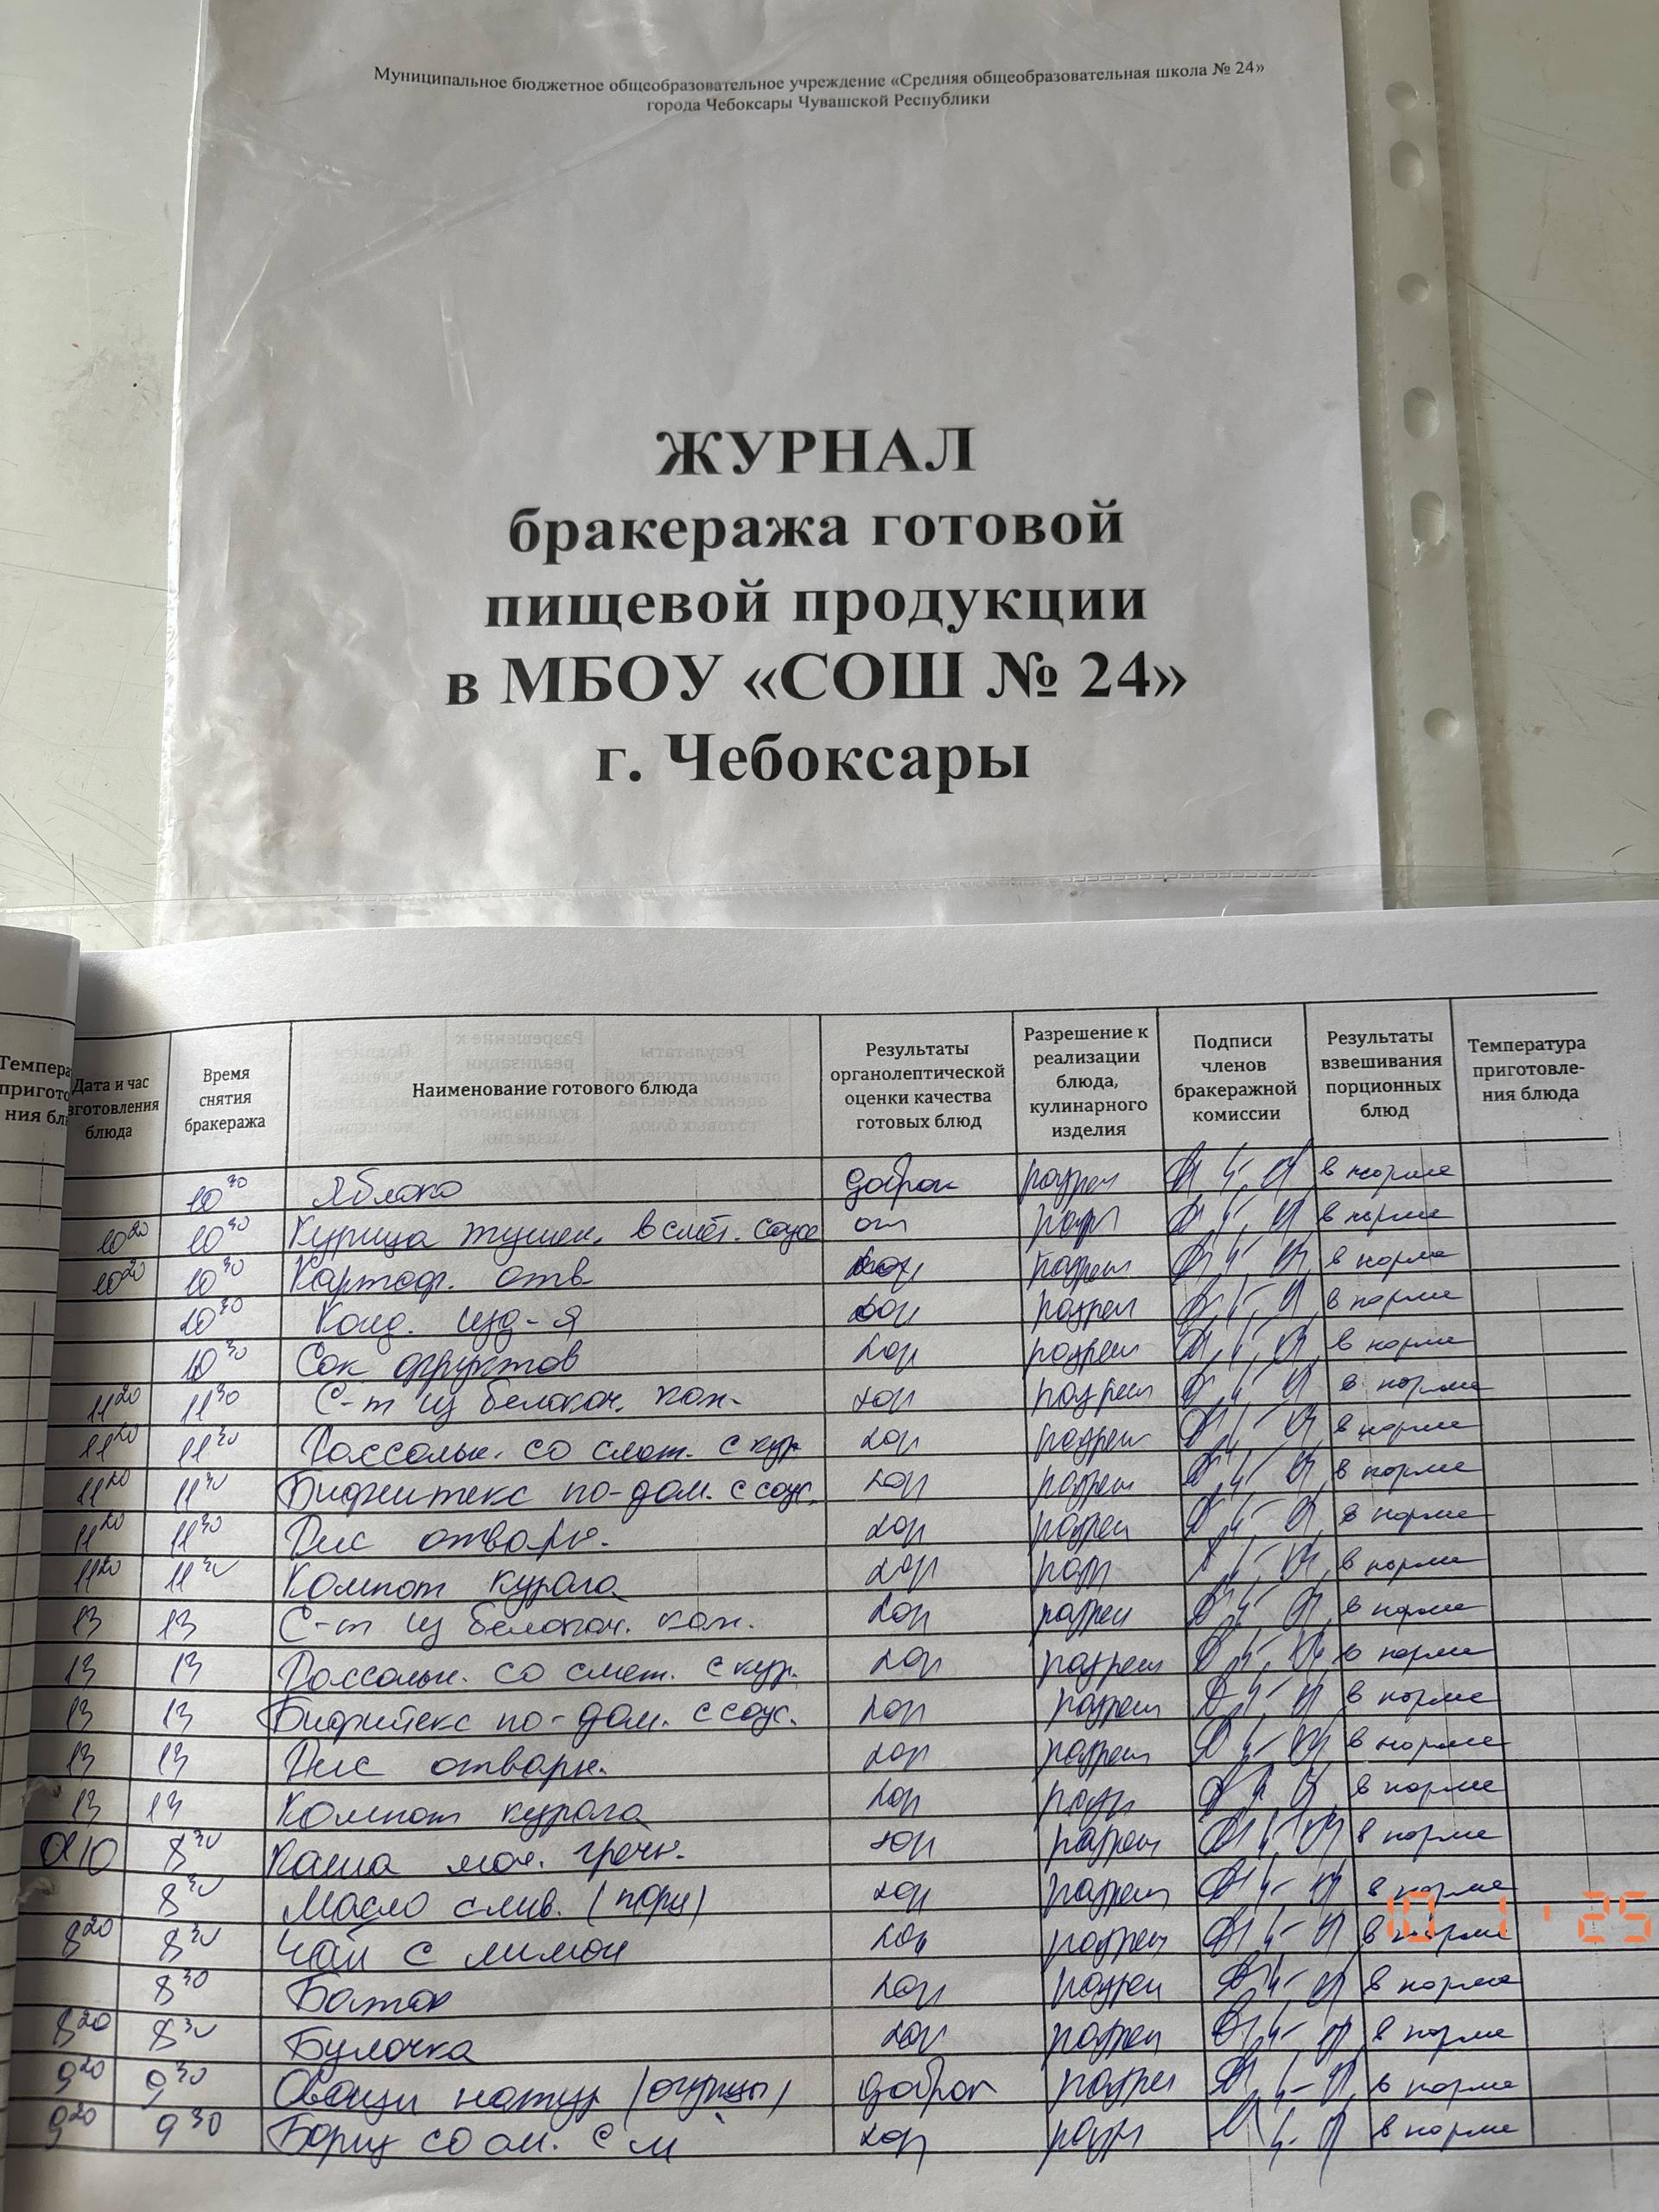 Муниципальное бюджетное общеобразовательное учреждение «Средняя общеобразовательная школа № 24»
города Чебоксары Чувашской Республики
ЖУРНАЛ
бракеража готовой
пищевой продукции
в МБОУ «СОШ № 24»
г. Чебоксары
Дата и час изготовления блюда Время снятия бракеража Наименование готового блюда Результаты органолептической оценки качества готовых блюд Разрешение к реализации блюда, кулинарного изделия Подписи членов бракеражной комиссии Результаты взвешивания порционных блюд Температура приготовле-ния блюда
10 30 Яблоко доброк разреш в норме
10 20 10 30 Курица тушен. в смет. соусе от разр в норме
10 20 10 30 Картоф. отв хор разреш в норме
10 30 Конд. изд-я хор разреш в норме
10 30 Сок фруктов хор разреш в норме
11 20 11 30 С-т из белокоч. кап. хор разреш в норме
11 20 11 30 Рассольн. со смет. с кур хор разреш в норме
11 20 11 30 Бифштекс по-дом. с соус. хор разреш в норме
11 20 11 30 Рис отварн. хор разреш в норме
11 20 11 30 Компот курага хор разр в норме
13 13 С-т из белокоч. кап. хор разреш в норме
13 13 Рассольн. со смет. с кур. хор разреш в норме
13 13 Бифштекс по-дом. с соус. хор разреш в норме
13 13 Рис отварн. хор разреш в норме
13 13 Компот курага хор разр в норме
8 30 Каша мол. гречн. хор разреш в норме
8 30 Масло слив. (порц) хор разреш в норме
8 20 8 30 Чай с лимон хор разреш в норме
8 30 Батон хор разреш в норме
8 20 8 30 Булочка хор разреш в норме
9 20 9 30 Овощи натур (огурцы) доброк разреш в норме
9 20 9 30 Борщ со см. с м хор разр в норме
10 1 '25